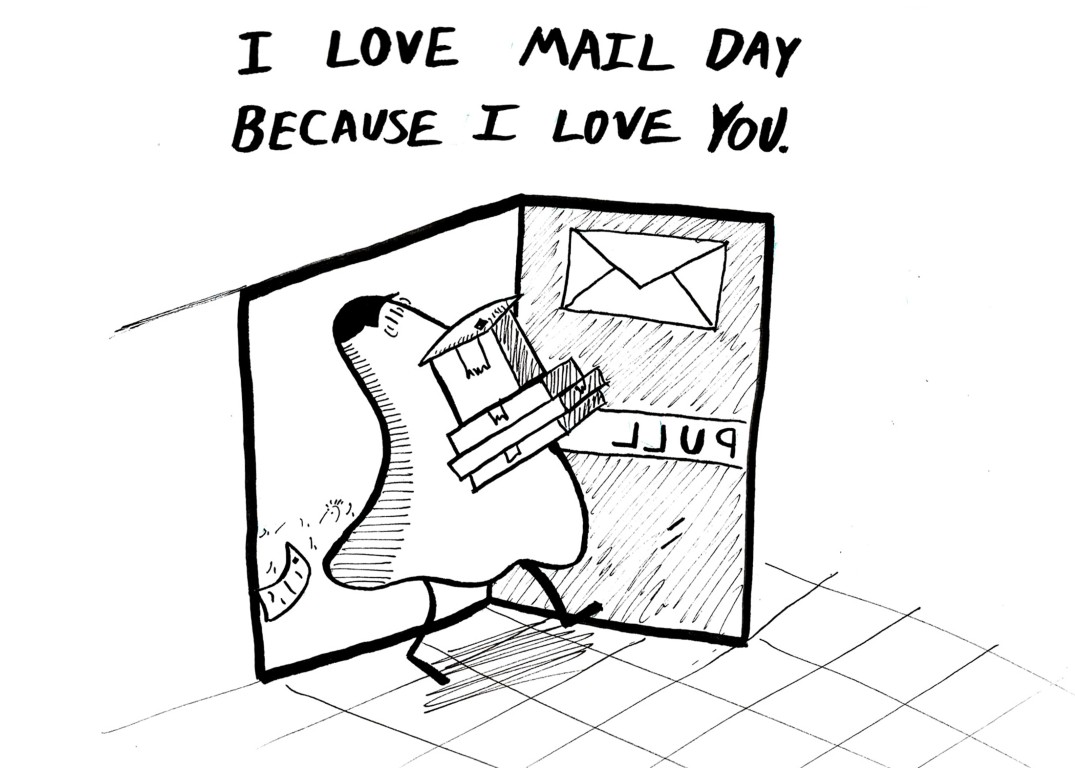 I LOVE MAIL DAY
BECAUSE I LOVE YOU.
PULL